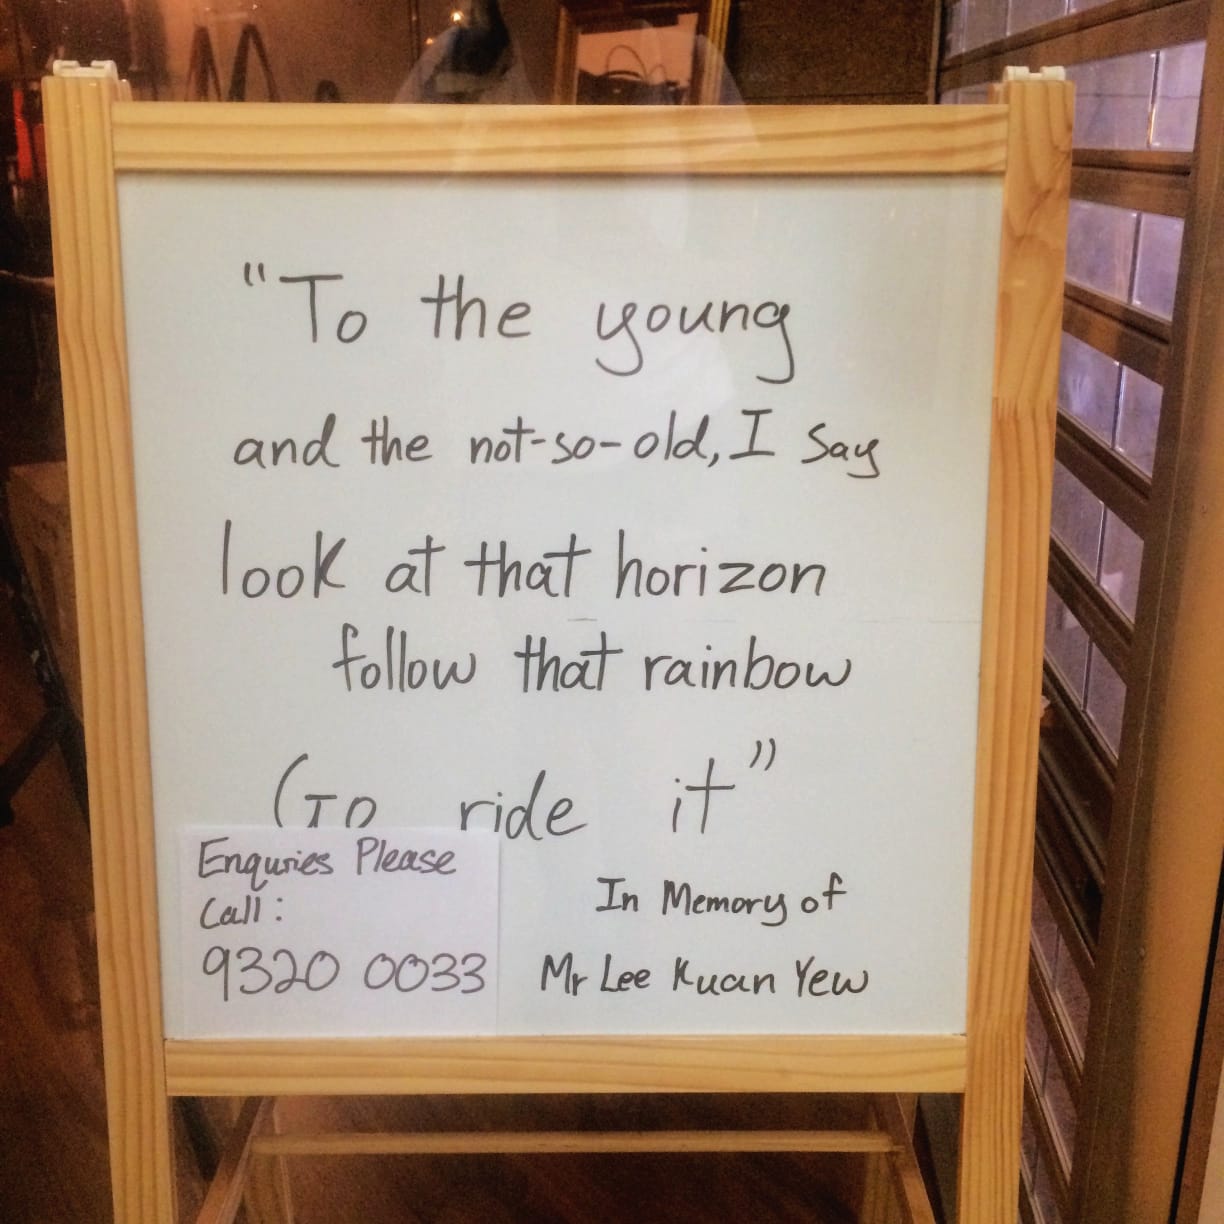 "To the young
and the not-so-old, I say
look at that horizon
follow that rainbow
Go ride it"
Enquries Please
Call:
9320 0033
In Memory of
Mr Lee Kuan Yew